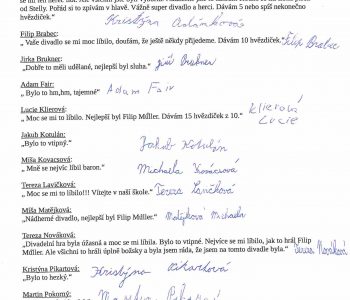 od Stelly. Pořád si to zpívám v hlavě. Vážně super divadlo a herci. Dávám 5 nebo spíš nekonečno
hvězdiček."
Kristýna Adámková
Filip Brabec:
„ Vaše divadlo se mi moc líbilo, doufám, že ještě někdy přijedeme. Dávám 10 hvězdiček." Filip Brabec
Jirka Brukner:
„Dobře to měli udělané, nejlepší byl sluha." Jiří Brukner
Adam Fair:
„ Bylo to hm,hm, tajemné" Adam Fair
Lucie Klierová:
„ Moc se mi to líbilo. Nejlepší byl Filip Műller. Dávám 15 hvězdiček z 10." Klierová
Lucie
Jakub Kotulán:
„Bylo to vtipný." Jakub Kotulán
Míša Kovacsová:
„ Mně se nejvíc líbil baron." Michaela Kovácsová
Tereza Lavičková:
„ Moc se mi to líbilo!!! Vítejte v naší škole." Tereza Lavičková
Míša Matějková:
„Nádherné divadlo, nejlepší byl Filip Műller." Matějková Michaela
Tereza Nováková:
„Divadelní hra byla úžasná a moc se mi líbila. Bylo to vtipné. Nejvíce se mi líbilo, jak to hrál Filip
Műller. Ale všichni to hráli úplně božsky a byla jsem ráda, že jsem na tomto divadle byla." Tereza Nováková
Kristýna Pikartová:
„Bylo to hezký." Kristýna Pikartová
Martin Pokorný:
Martin Pokorný